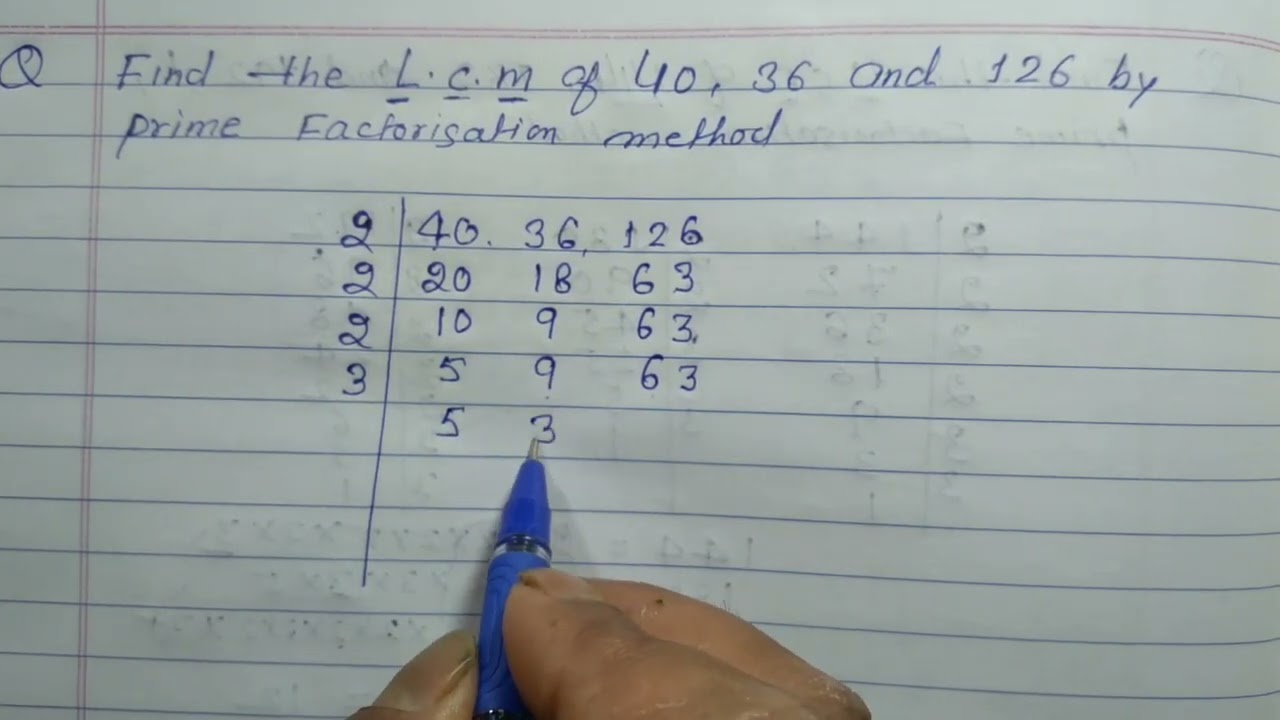 Q Find the L.C.M of 40, 36 and 126 by
prime Factorisation method
2 | 40. 36, 126
2 | 20 18 63
2 | 10 9 63.
3 | 5 9 63
5 3